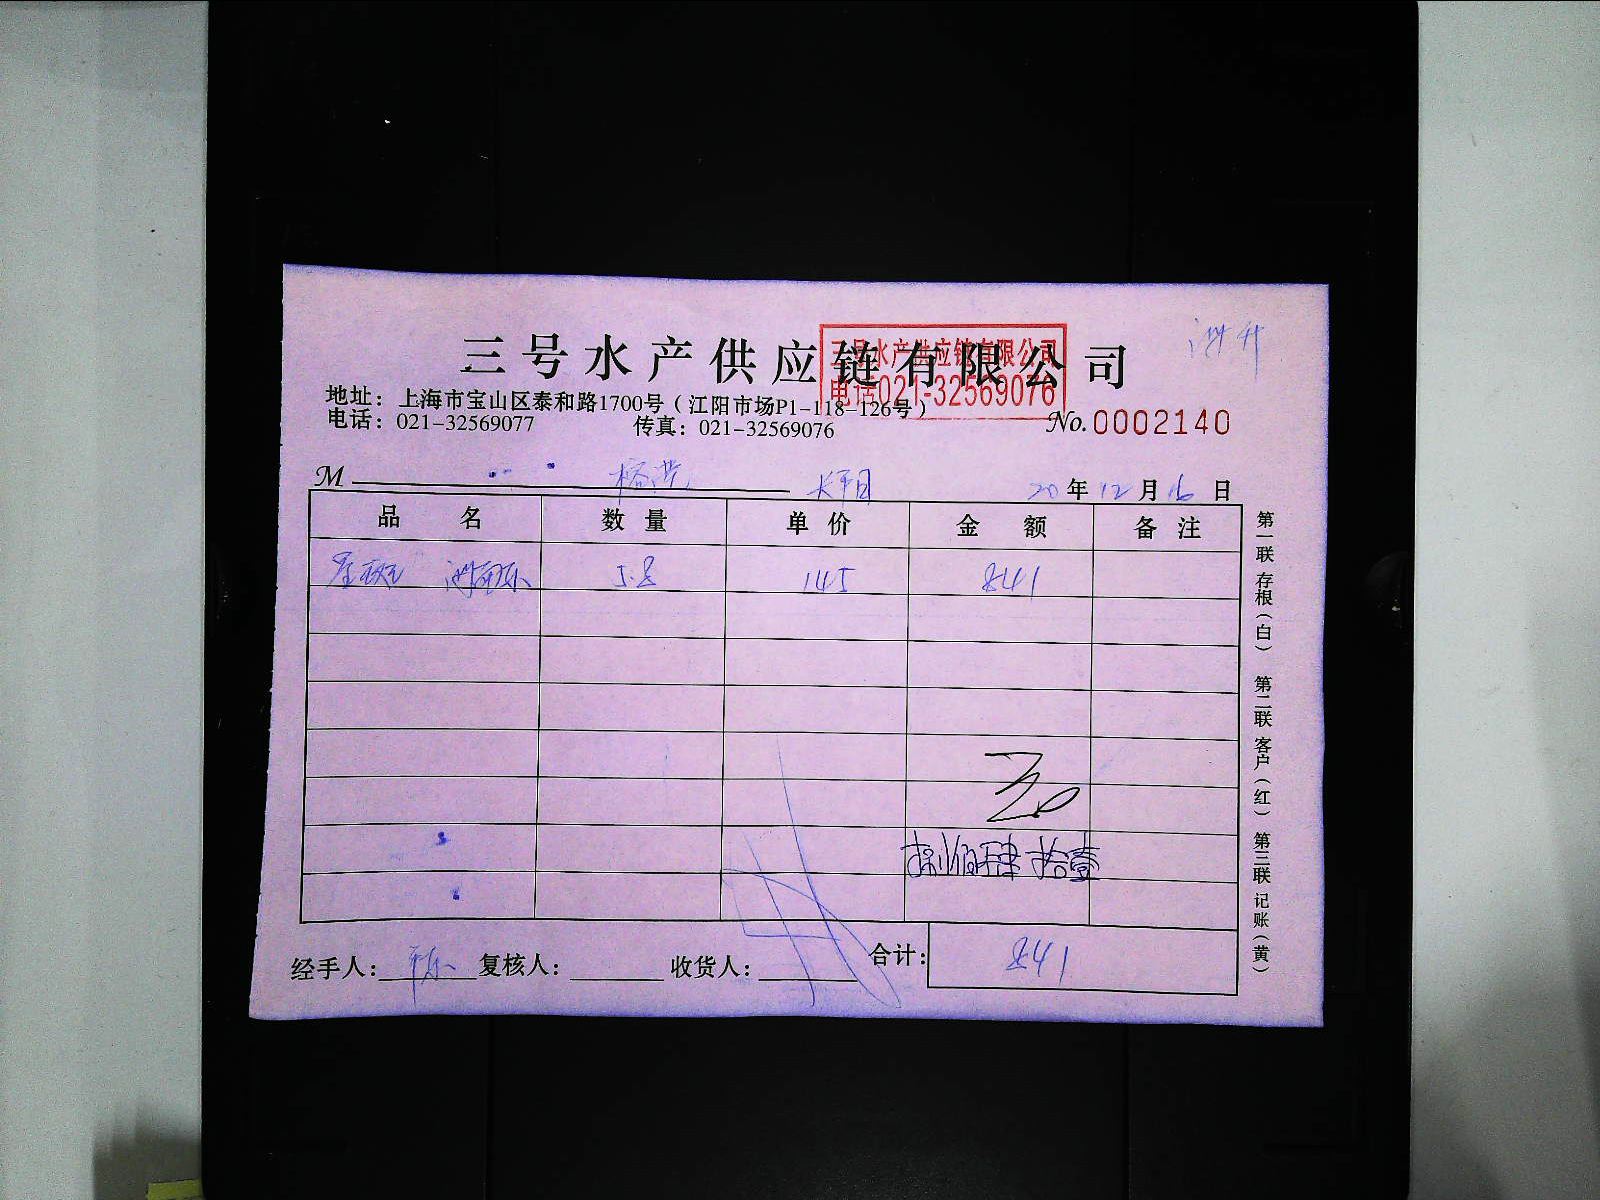 三号水产供应链有限公司
三号水产供应链有限公司
电话021-32569076
地址：上海市宝山区泰和路1700号（江阳市场P1-118-126号）
电话：021-32569077 传真：021-32569076
No.0002140
M
20年12月16日
品名 数量 单价 金额 备注
5.8 145 841
捌佰肆拾壹
经手人： 复核人： 收货人： 合计：841
第一联 存根（白） 第二联 客户（红） 第三联 记账（黄）